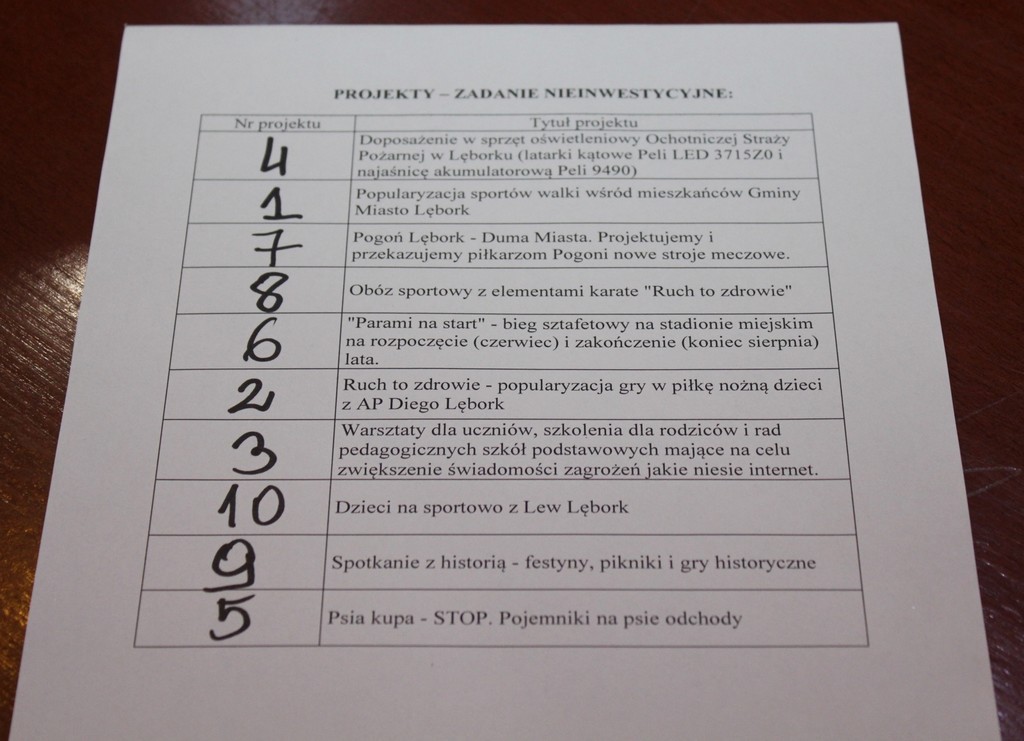 PROJEKTY – ZADANIE NIEINWESTYCYJNE:
Nr projektu Tytuł projektu
4 Doposażenie w sprzęt oświetleniowy Ochotniczej Straży
Pożarnej w Lęborku (latarki kątowe Peli LED 3715Z0 i
najaśnicę akumulatorową Peli 9490)
1 Popularyzacja sportów walki wśród mieszkańców Gminy
Miasto Lębork
7 Pogoń Lębork - Duma Miasta. Projektujemy i
przekazujemy piłkarzom Pogoni nowe stroje meczowe.
8 Obóz sportowy z elementami karate "Ruch to zdrowie"
6 "Parami na start" - bieg sztafetowy na stadionie miejskim
na rozpoczęcie (czerwiec) i zakończenie (koniec sierpnia)
lata.
2 Ruch to zdrowie - popularyzacja gry w piłkę nożną dzieci
z AP Diego Lębork
3 Warsztaty dla uczniów, szkolenia dla rodziców i rad
pedagogicznych szkół podstawowych mające na celu
zwiększenie świadomości zagrożeń jakie niesie internet.
10 Dzieci na sportowo z Lew Lębork
9 Spotkanie z historią - festyny, pikniki i gry historyczne
5 Psia kupa - STOP. Pojemniki na psie odchody